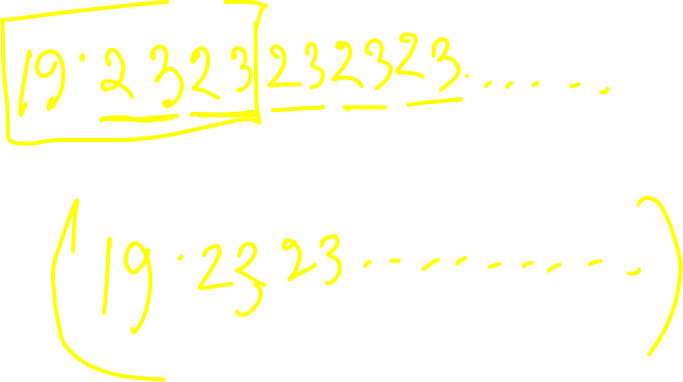 19.2323232323.......
(19.2323..........)